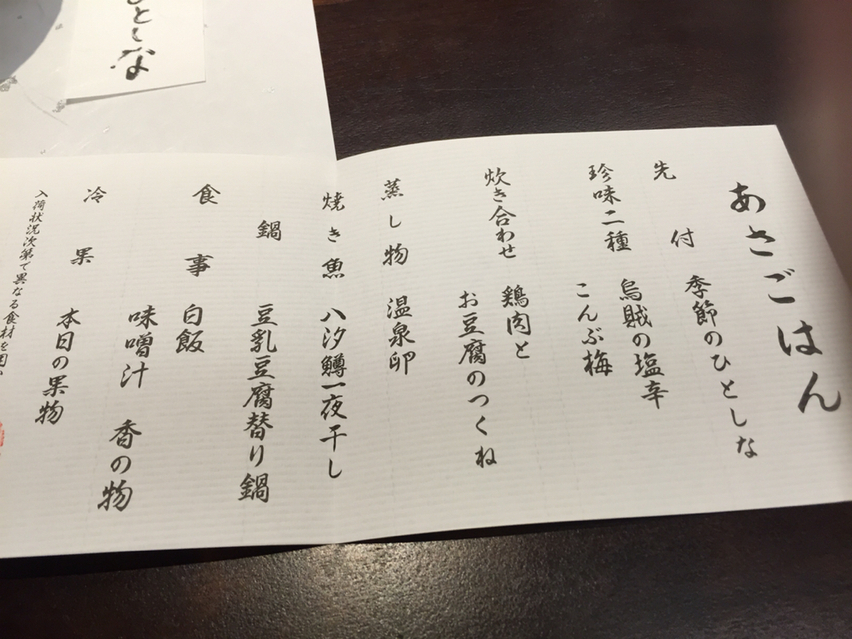 ひとしな
あさごはん
先付 季節のひとしな
珍味二種 烏賊の塩辛
こんぶ梅
炊き合わせ 鶏肉と
お豆腐のつくね
蒸し物 温泉卵
焼き魚 八汐鱒一夜干し
鍋 豆乳豆腐替り鍋
食事 白飯
味噌汁 香の物
冷果 本日の果物
入荷状況次第で異なる食材を用い